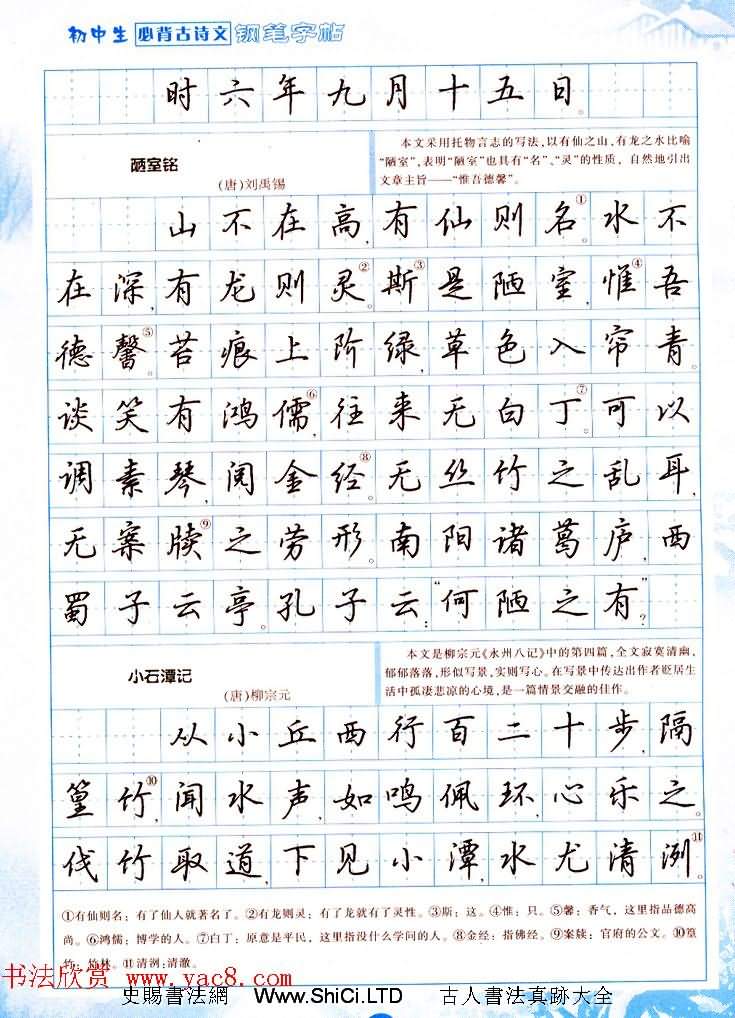 初中生 必背古诗文 钢笔字帖
时六年九月十五日。
陋室铭
(唐)刘禹锡
本文采用托物言志的写法,以有仙之山,有龙之水比喻
“陋室”,表明“陋室”也具有“名”、“灵”的性质,自然地引出
文章主旨——“惟吾德馨”。
山不在高,有仙则名①。水不
在深,有龙则灵②。斯③是陋室,惟④吾
德馨⑤。苔痕上阶绿,草色入帘青。
谈笑有鸿儒⑥,往来无白丁⑦。可以
调素琴,阅金经⑧。无丝竹之乱耳,
无案牍⑨之劳形。南阳诸葛庐,西
蜀子云亭。孔子云:“何陋之有”?
小石潭记
(唐)柳宗元
本文是柳宗元《永州八记》中的第四篇,全文寂寞清幽,
郁郁落落,形似写景,实则写心。在写景中传达出作者贬居生
活中孤凄悲凉的心境,是一篇情景交融的佳作。
从小丘西行百二十步,隔
篁竹⑩,闻水声,如鸣佩环,心乐之。
伐竹取道,下见小潭,水尤清洌⑪
①有仙则名:有了仙人就著名了。②有龙则灵:有了龙就有了灵性。③斯:这。④惟:只。⑤馨:香气,这里指品德高
尚。⑥鸿儒:博学的人。⑦白丁:原意是平民,这里指没什么学问的人。⑧金经:指佛经。⑨案牍:官府的公文。⑩篁
竹:竹林。⑪清洌:清澈。
书法欣赏 www.yac8.com
史賜書法網 www.ShiCi.LTD 古人書法真跡大全